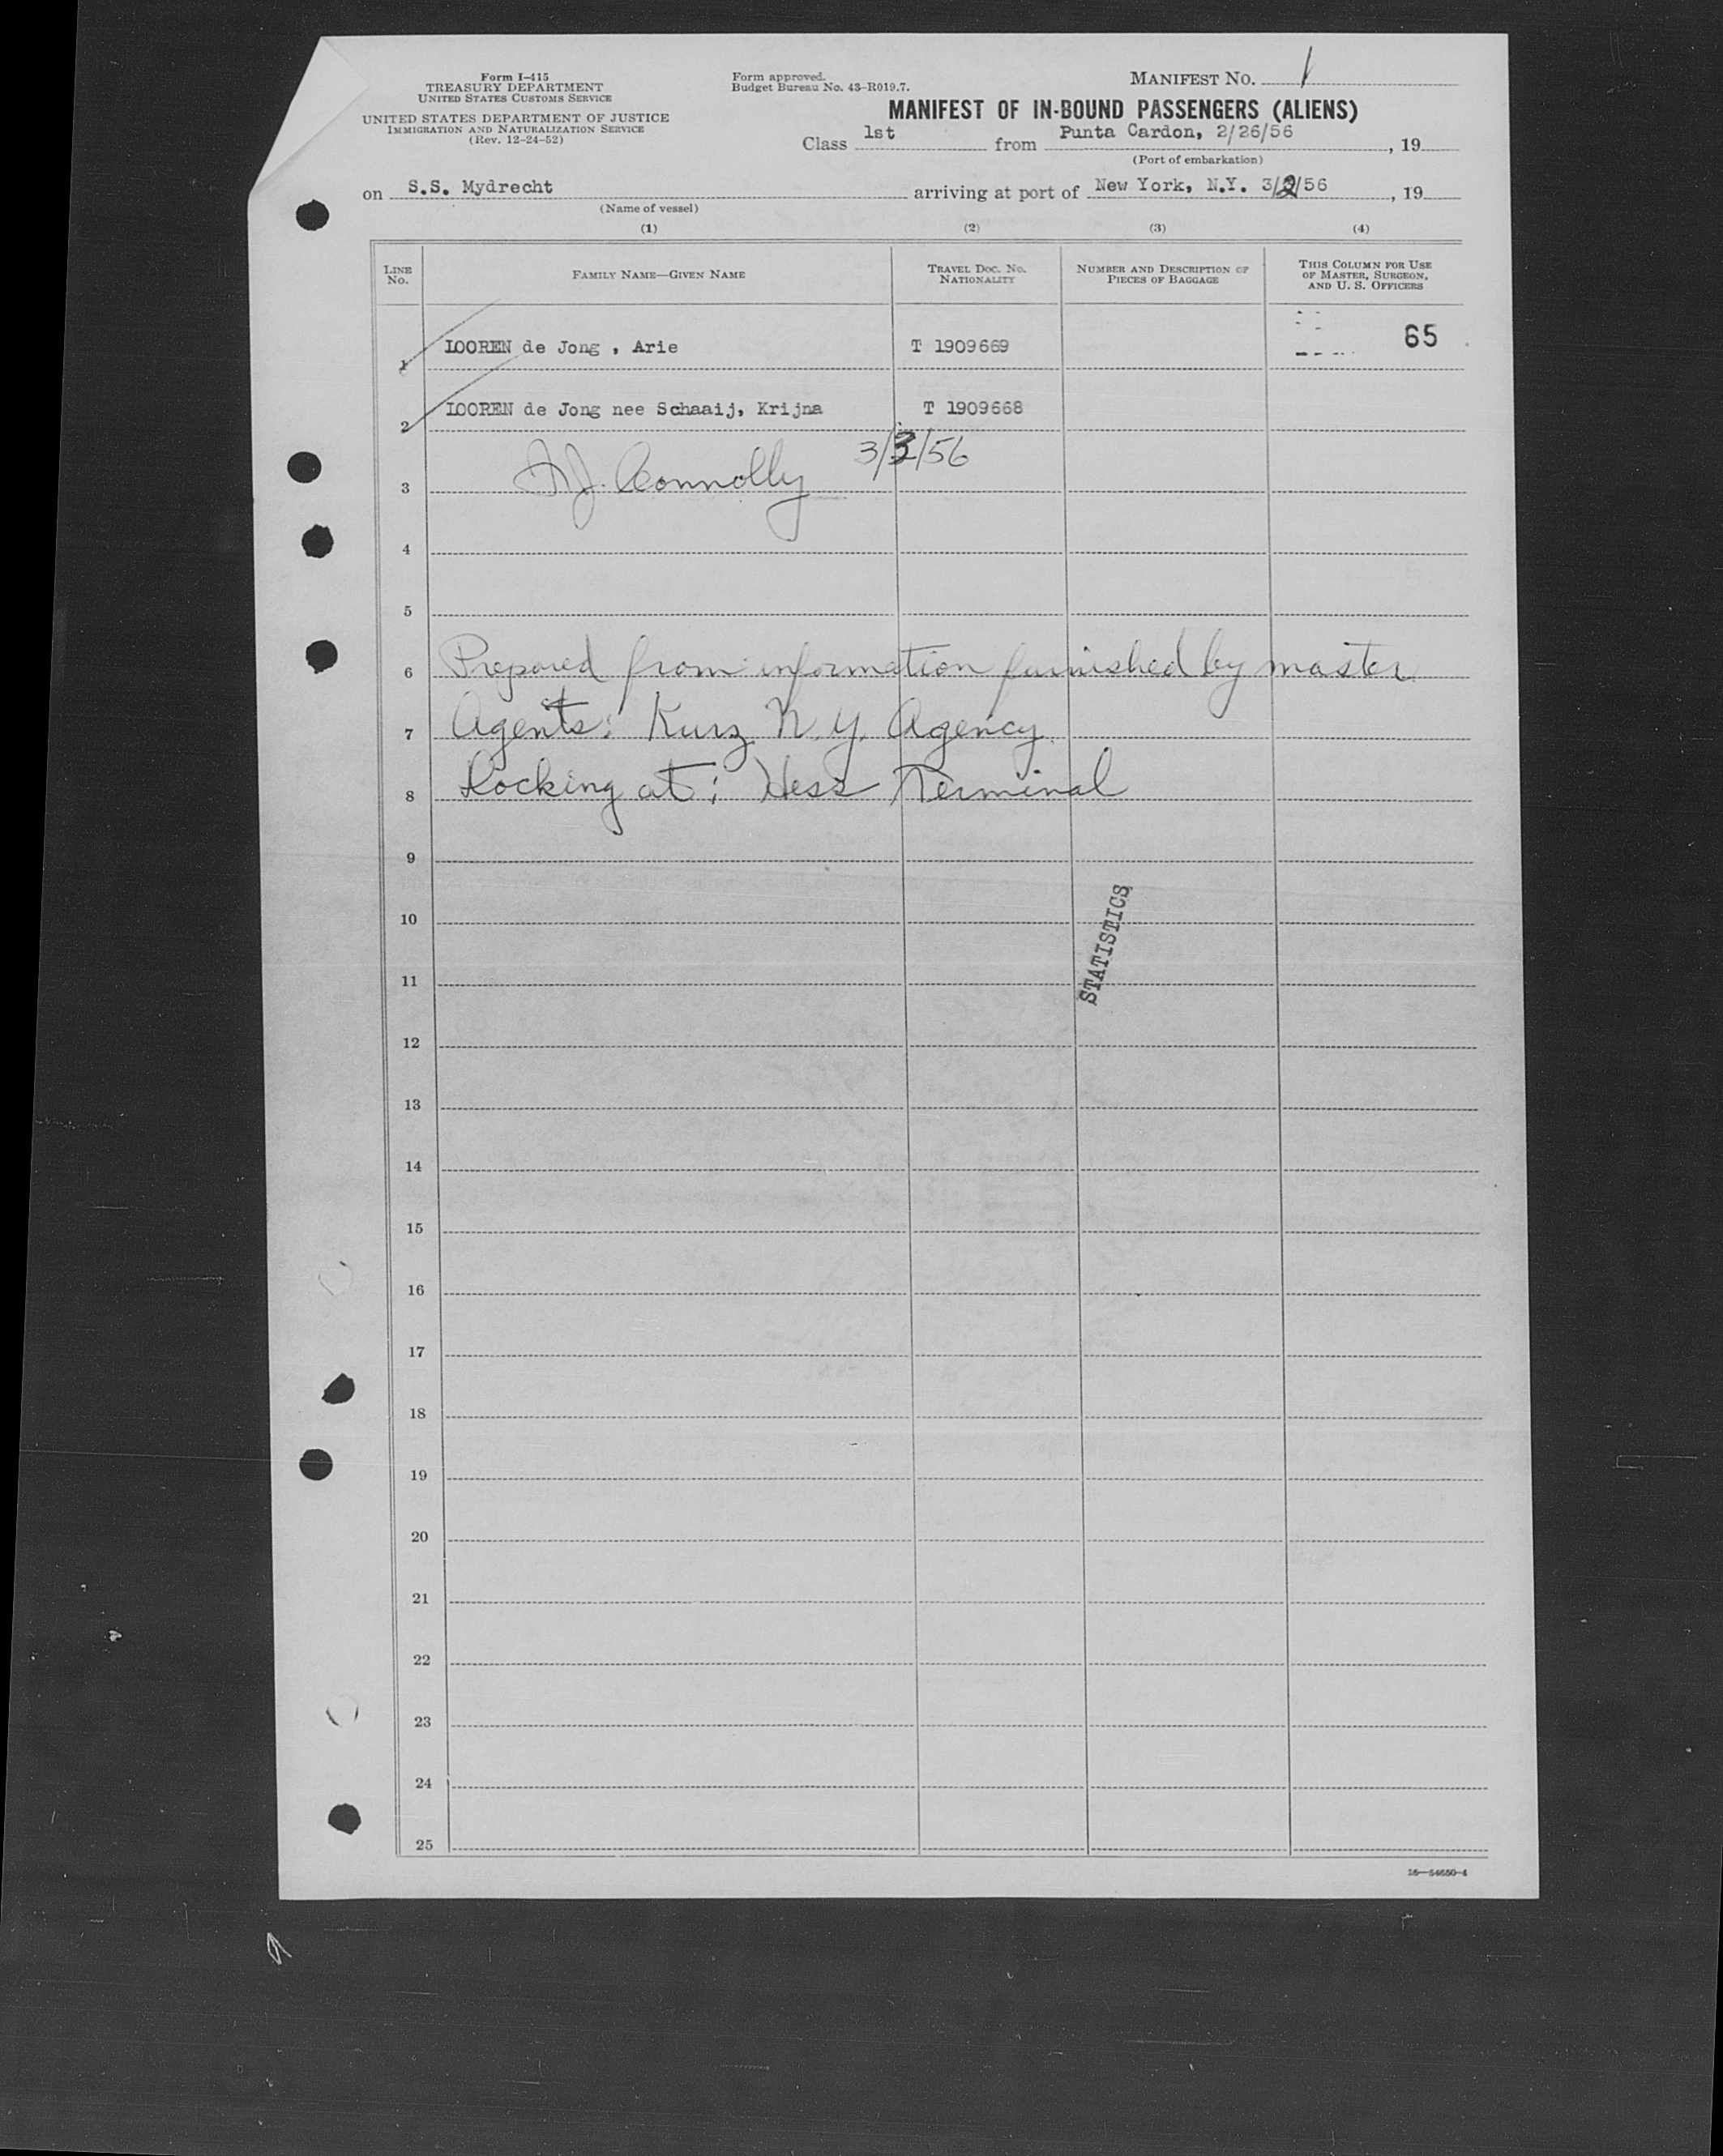 Form I-415
TREASURY DEPARTMENT
UNITED STATES CUSTOMS SERVICE
UNITED STATES DEPARTMENT OF JUSTICE
IMMIGRATION AND NATURALIZATION SERVICE
(Rev. 12-24-52)
Form approved.
Budget Bureau No. 43-R019.7.
MANIFEST NO. 1
MANIFEST OF IN-BOUND PASSENGERS (ALIENS)
Class 1st from Punta Cardon, 2/26/56, 19
(Port of embarkation)
on S.S. Mydrecht arriving at port of New York, N.Y. 3/2/56, 19
(Name of vessel)
(1) (2) (3) (4)
LINE NO. FAMILY NAME—GIVEN NAME TRAVEL DOC. NO. NATIONALITY NUMBER AND DESCRIPTION OF PIECES OF BAGGAGE THIS COLUMN FOR USE OF MASTER, SURGEON, AND U. S. OFFICERS
1 LOOREN de Jong , Arie T 1909669 65
2 LOOREN de Jong nee Schaaij, Krijna T 1909668
3 Connolly 3/3/56
4
5
6 Prepared from information furnished by master
7 Agents: Kurz N.Y. Agency
8 Docking at: Hess Terminal
9
10
STATISTICS
11
12
13
14
15
16
17
18
19
20
21
22
23
24
25
16—54650-4